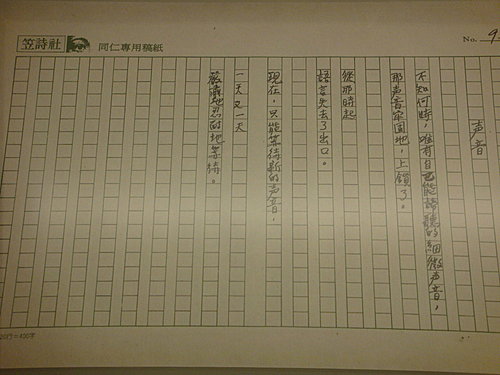 笠詩社 同仁專用稿紙
No. 9
声音
不知何時，唯有自己能諦聽的細微声音，
那声音牢固地，上鎖了。
從那時起
語言失去了出口。
現在，只能等待新的声音，
一天又一天
嚴肅地忍耐地等待。
20行=400字